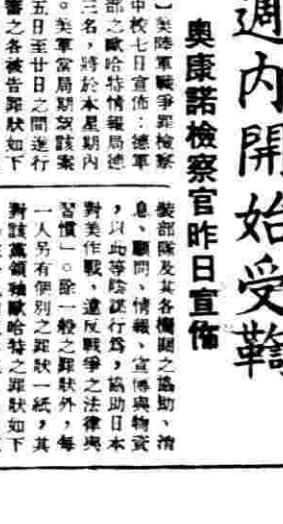 週內開始受鞫
奧康諾檢察官昨日宣佈
】美陸軍戰爭罪檢察
中校七日宣佈：德軍
部之歐哈特情報局德
三名，將於本星期內
。美軍當局期望該案
五日至廿日之間進行
審之各被告罪狀如下
裝部隊及其各機關之協助、消
息、顧問、情報、宣傳與物資
，以此等陰謀行爲，協助日本
對美作戰、違反戰爭之法律與
習慣」。除一般之罪狀外，每
一人另有個別之罪狀一紙，其
對該黨領袖歐哈特之罪狀如下